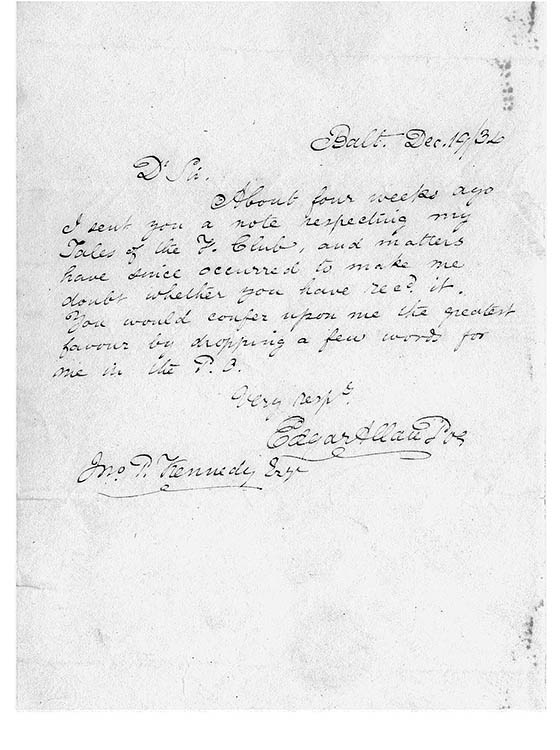 Balt. Dec. 19/34
Dr Sir.
About four weeks ago
I sent you a note respecting my
Tales of the F. Club, and matters
have since occurred to make me
doubt whether you have recd. it.
You would confer upon me the greatest
favour by dropping a few words for
me in the P. O.
Very respy.
Edgar Allan Poe
Jno. P. Kennedy Esqr